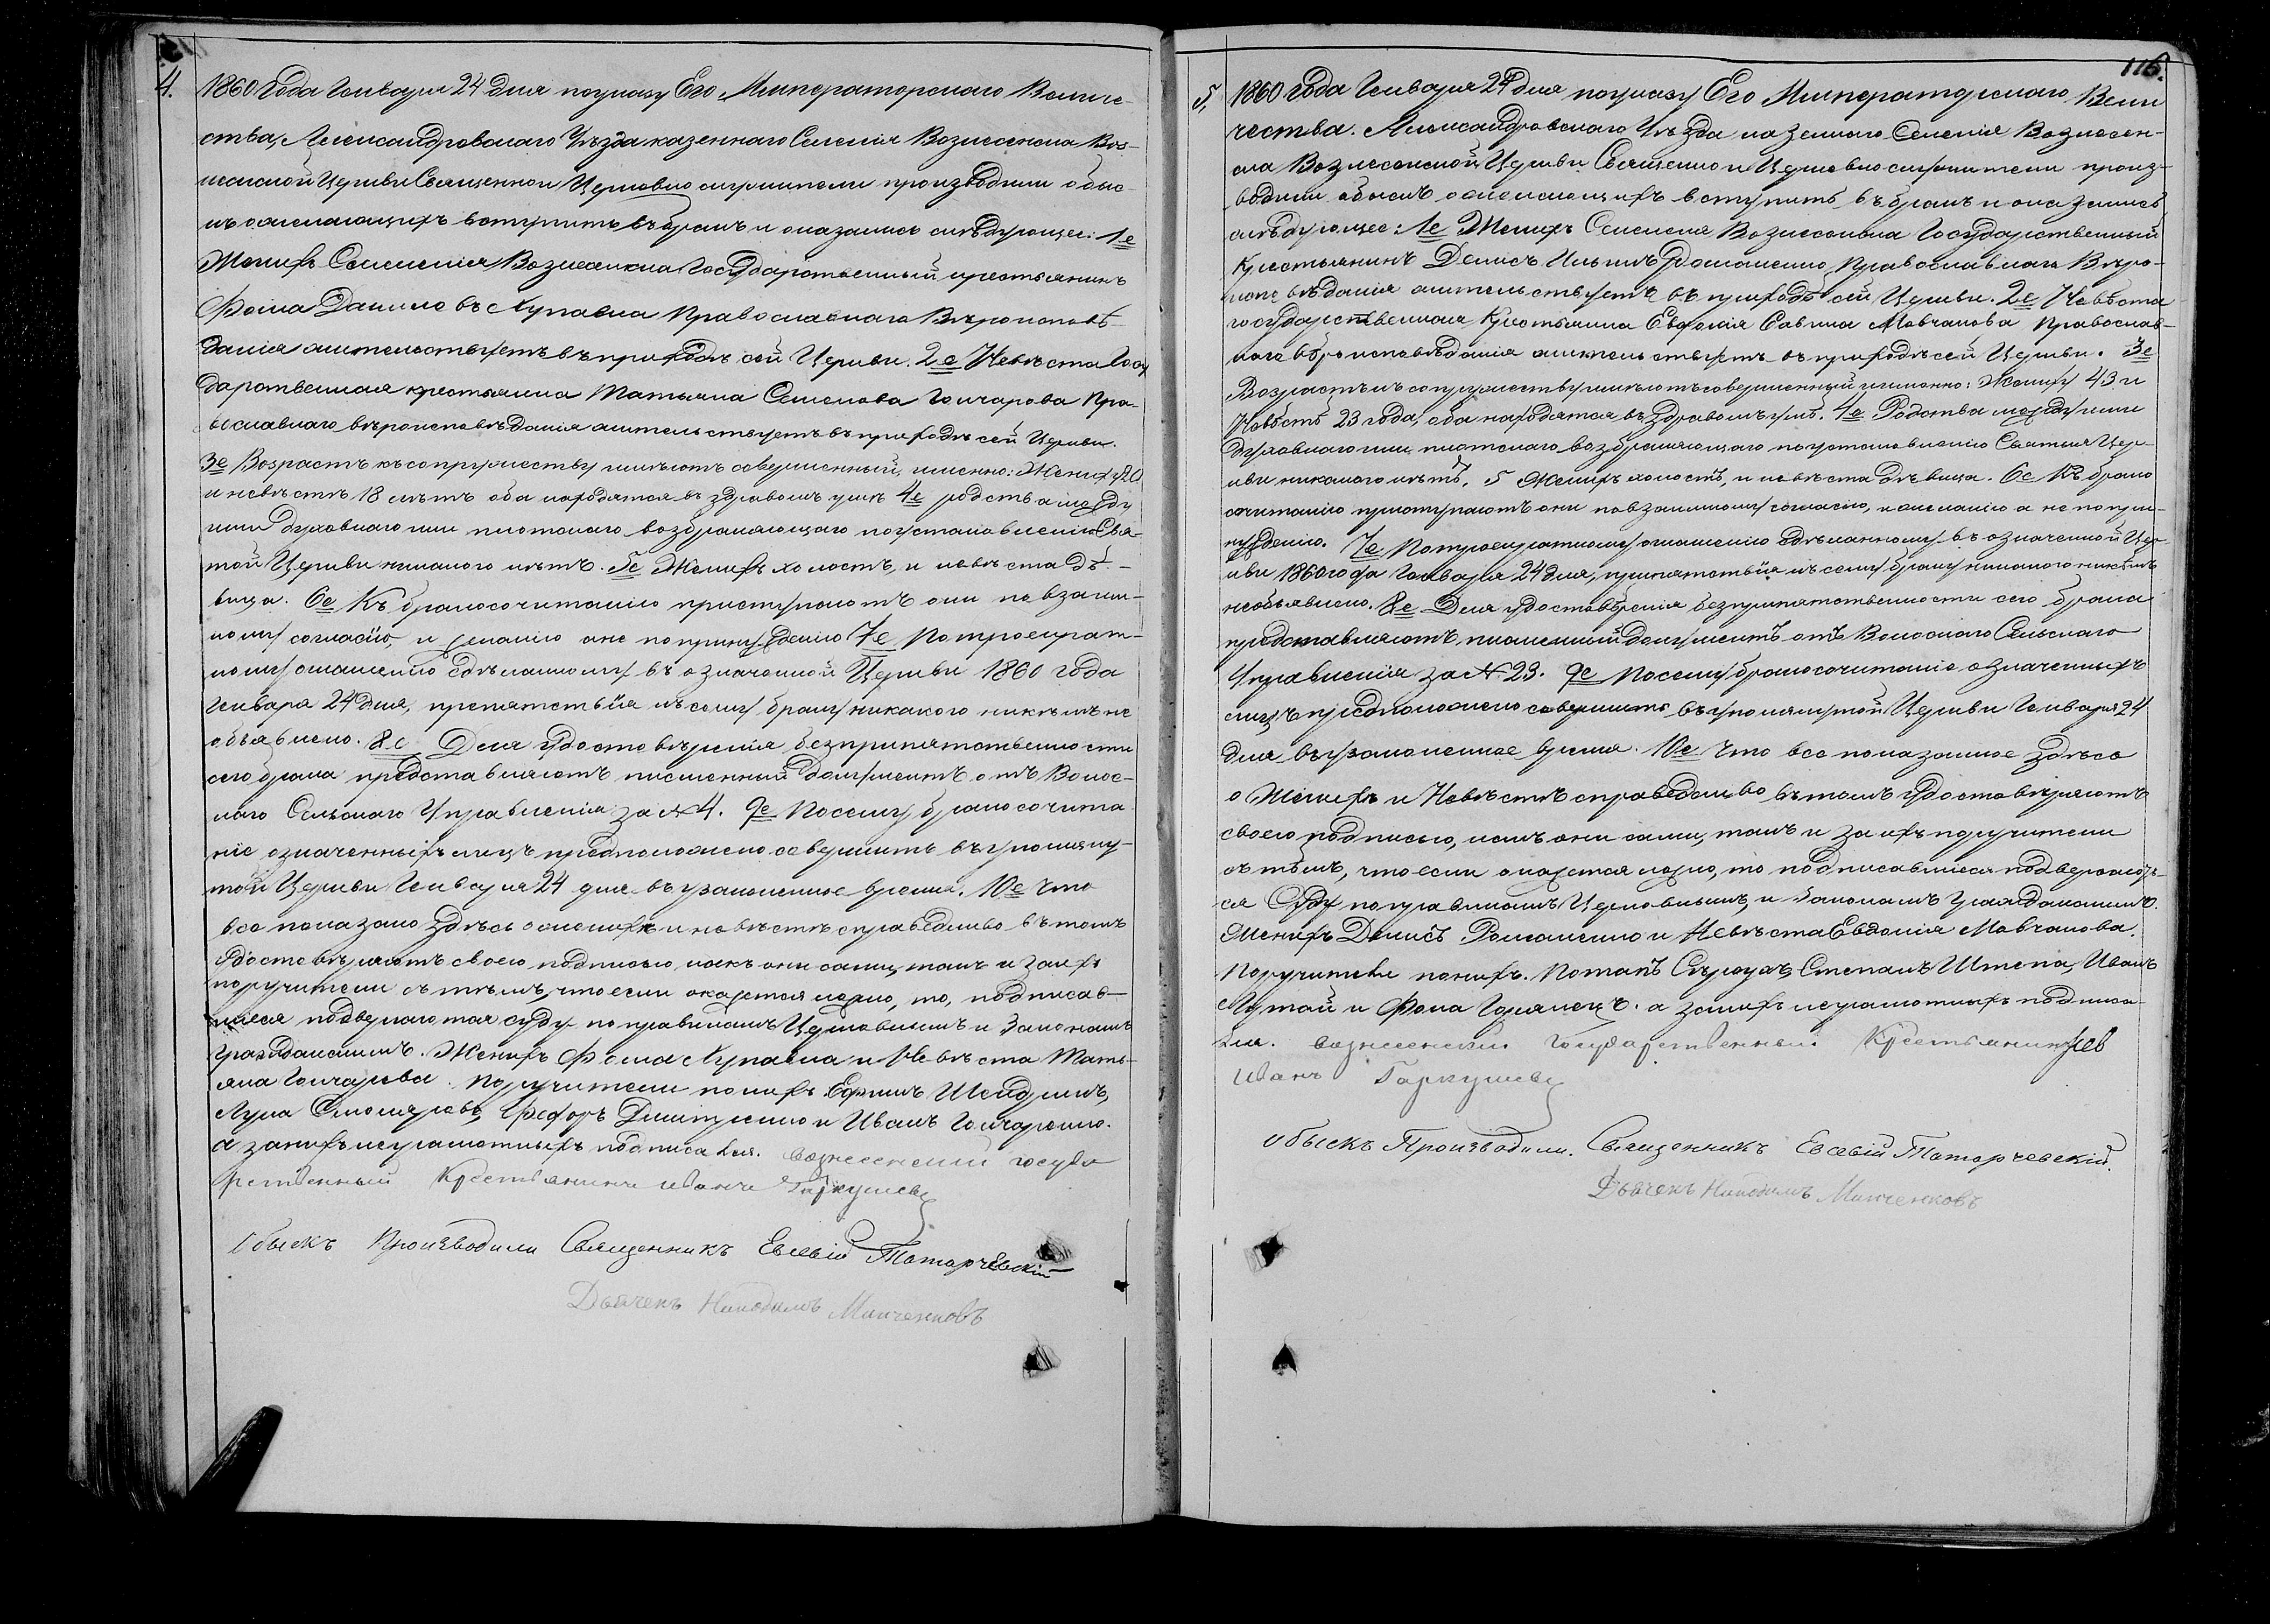 4.
1860 года Генваря 24 дня по указу Его Императорскаго Величе-
ства, Александровскаго Уѣзда казеннаго Селенія Вознесенска Воз-
несенской Церкви Священно и Церковно служители производили обыс-
къ о желающихъ вступить въ бракъ и оказалось слѣдующее: 1е
Женихъ Селенія Вознесенска Государственный крестьянинъ
Фома Данилевъ Купавка Православнаго Вѣроисповѣ-
данія жительствуетъ въ приходѣ сей Церкви. 2е Невѣста Госу
дарственная крестьянка Татьяна Семенова Гончарова Пра-
вославнаго вѣроисповѣданія жительствуетъ въ приходѣ сей Церкви.
3е Возрастъ къ супружеству имѣютъ совершенный, именно: Жениху 20
и невѣстѣ 18 лѣтъ оба находятся въ здравомъ умѣ 4е родства между
ими духовнаго или плотскаго возбраняющаго по установленію Свя-
той Церкви никакого нѣтъ. 5е Женихъ холостъ, и невѣста дѣ-
вица. 6е Къ бракосочитанію приступаютъ они по взаим-
ному согласію, и желанію а не по принужденію 7е По троекрат-
ному оглашенію сдѣланному въ означенной Церкви 1860 года
Генваря 24 дня, препятствія къ сему браку никакого никѣмъ не
объявлено. 8е Для удостовѣренія безпрепятственности
сего брака представляютъ письменный документъ отъ Волос-
наго Сельскаго Управленія за № 4. 9е Посему бракосочита
ніе означенныхъ лицъ предположено совершить въ упомяну-
той Церкви Генваря 24 дня въ узаконенное время. 10е Что
все показано здѣсь о женихѣ и невѣстѣ справедливо въ томъ
удостовѣряютъ своею подписью какъ они сами, такъ и за ихъ
поручители съ тѣмъ, что если окажется ложно, то, подписав-
шіеся подвергаются суду по правиламъ Церковнымъ и Законамъ
Гражданскимъ. Женихъ Фома Купавка и Невѣста Тать-
яна Гончарова. Поручители по нихъ Ефимъ Шендрикъ,
Лука Столяровъ, Федоръ Дмитренко и Иванъ Гончаренко.
а за нихъ неграмотныхъ подписался. вознесенский госуда
рственный Крестьянинъ иванъ Гаркушевъ
Обыскъ Производили Священникъ Евсевій Татарчевскій
Дьячекъ Никодимъ Минченковъ
116.
5.
1860 года Генваря 24 дня по указу Его Императорскаго Вели
чества. Александровскаго Уѣзда казеннаго Селенія Вознесен-
ска Вознесенской Церкви Священно и Церковно служители произ-
водили обыскъ о желающихъ вступить въ бракъ и оказалось
слѣдующее: 1е Женихъ Селенія Вознесенска Государственный
Крестьянинъ Денисъ Ильинъ Романенко Православнаго Вѣро-
исповѣданія жительствуетъ въ приходѣ сей Церкви. 2е Невѣста
государственная Крестьянка Евдокія Савина Мовчанова Православ-
наго вѣроисповѣданія жительствуетъ въ приходѣ сей Церкви. 3е
Возрастъ къ супружеству имѣютъ совершенный именно: Жениху 43 и
Невѣстѣ 23 года, оба находятся въ здравомъ умѣ. 4е Родства между ими
духовнаго или плотскаго возбраняющаго по установленію Святыя Цер-
кви никакого нѣтъ. 5 Женихъ холостъ, и невѣста дѣвица. 6е Къ брако
сочитанію приступаютъ они по взаимному согласію, и желанію а не по прин-
нужденію. 7е По троекратному оглашенію сдѣланному въ означенной Цер-
кви 1860 года Генваря 24 дня, препятствія къ сему браку никакого никѣмъ
необъявлено. 8е Для удостовѣренія безпрепятственности сего брака
представляютъ письменный документъ отъ Волоснаго Сельскаго
Управленія за № 23. 9е Посему бракосочитаніе означенныхъ
лицъ предположено совершить въ упомянутой Церкви Генваря 24
дня въ узаконенное время. 10е Что все показанное здѣсь
о Женихѣ и Невѣстѣ справедливо въ томъ удостовѣряютъ
своею подписью, какъ они сами, такъ и за ихъ поручители
съ тѣмъ, что если окажется ложно, то подписавшіеся подвергают-
ся Суду по правиламъ Церковнымъ, и Законамъ Гражданскимъ.
Женихъ Денисъ Романенко и Невѣста Евдокія Мовчанова.
Поручители по нихъ. Потапъ Сѣроухъ, Степанъ Штепа, Иванъ
Кутой и Фома Горянецъ. а за нихъ неграмотныхъ подписа-
лся. вознесенский государственный Крестьянинъ
иванъ Гаркушевъ
Обыскъ Производили. Священникъ Евсевій Татарчевскій.
Дьячекъ Никодимъ Минченковъ